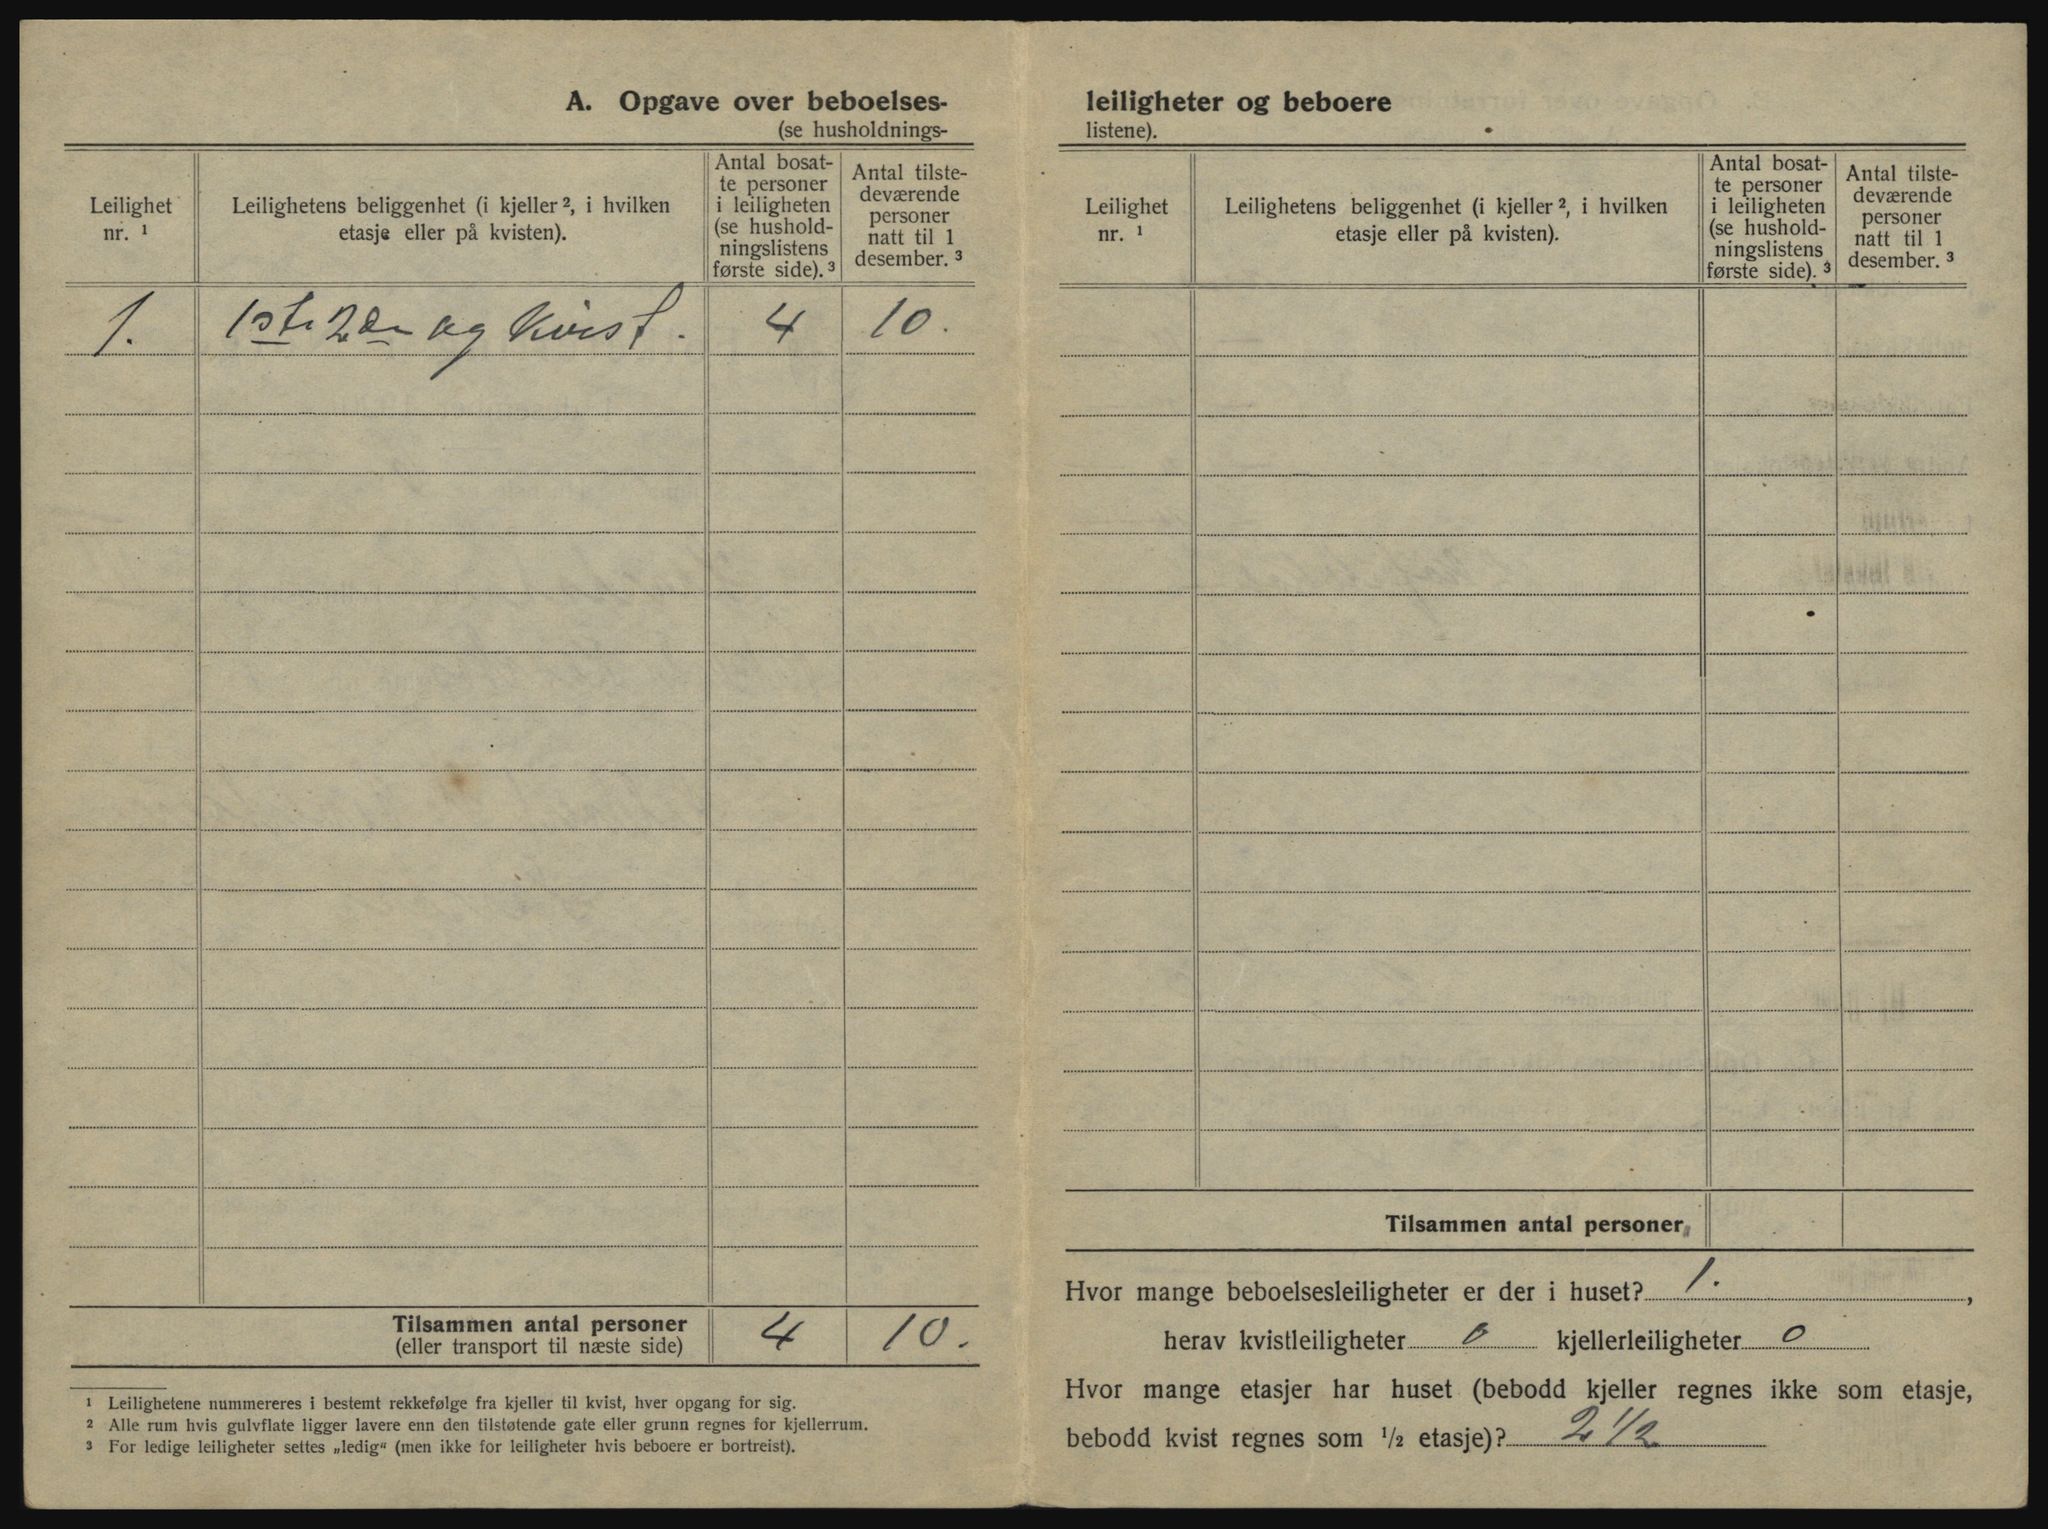 A. Opgave over beboelses-
(se husholdnings-
Leilighet nr. ¹
Leilighetens beliggenhet (i kjeller ², i hvilken
etasje eller på kvisten).
Antal bosat-
te personer
i leiligheten
(se hushold-
ningslistens
første side). ³
Antal tilste-
deværende
personer
natt til 1
desember. ³
1. 1ste 2den og kvist. 4 10.
Tilsammen antal personer 4 10.
(eller transport til næste side)
¹ Leilighetene nummereres i bestemt rekkefølge fra kjeller til kvist, hver opgang for sig.
² Alle rum hvis gulvflate ligger lavere enn den tilstøtende gate eller grunn regnes for kjellerrum.
³ For ledige leiligheter settes „ledig“ (men ikke for leiligheter hvis beboere er bortreist).
leiligheter og beboere
listene).
Leilighet nr. ¹
Leilighetens beliggenhet (i kjeller ², i hvilken
etasje eller på kvisten).
Antal bosat-
te personer
i leiligheten
(se hushold-
ningslistens
første side). ³
Antal tilste-
deværende
personer
natt til 1
desember. ³
Tilsammen antal personer
Hvor mange beboelsesleiligheter er der i huset? 1. ,
herav kvistleiligheter 0 kjellerleiligheter 0
Hvor mange etasjer har huset (bebodd kjeller regnes ikke som etasje,
bebodd kvist regnes som ½ etasje)? 2 ½